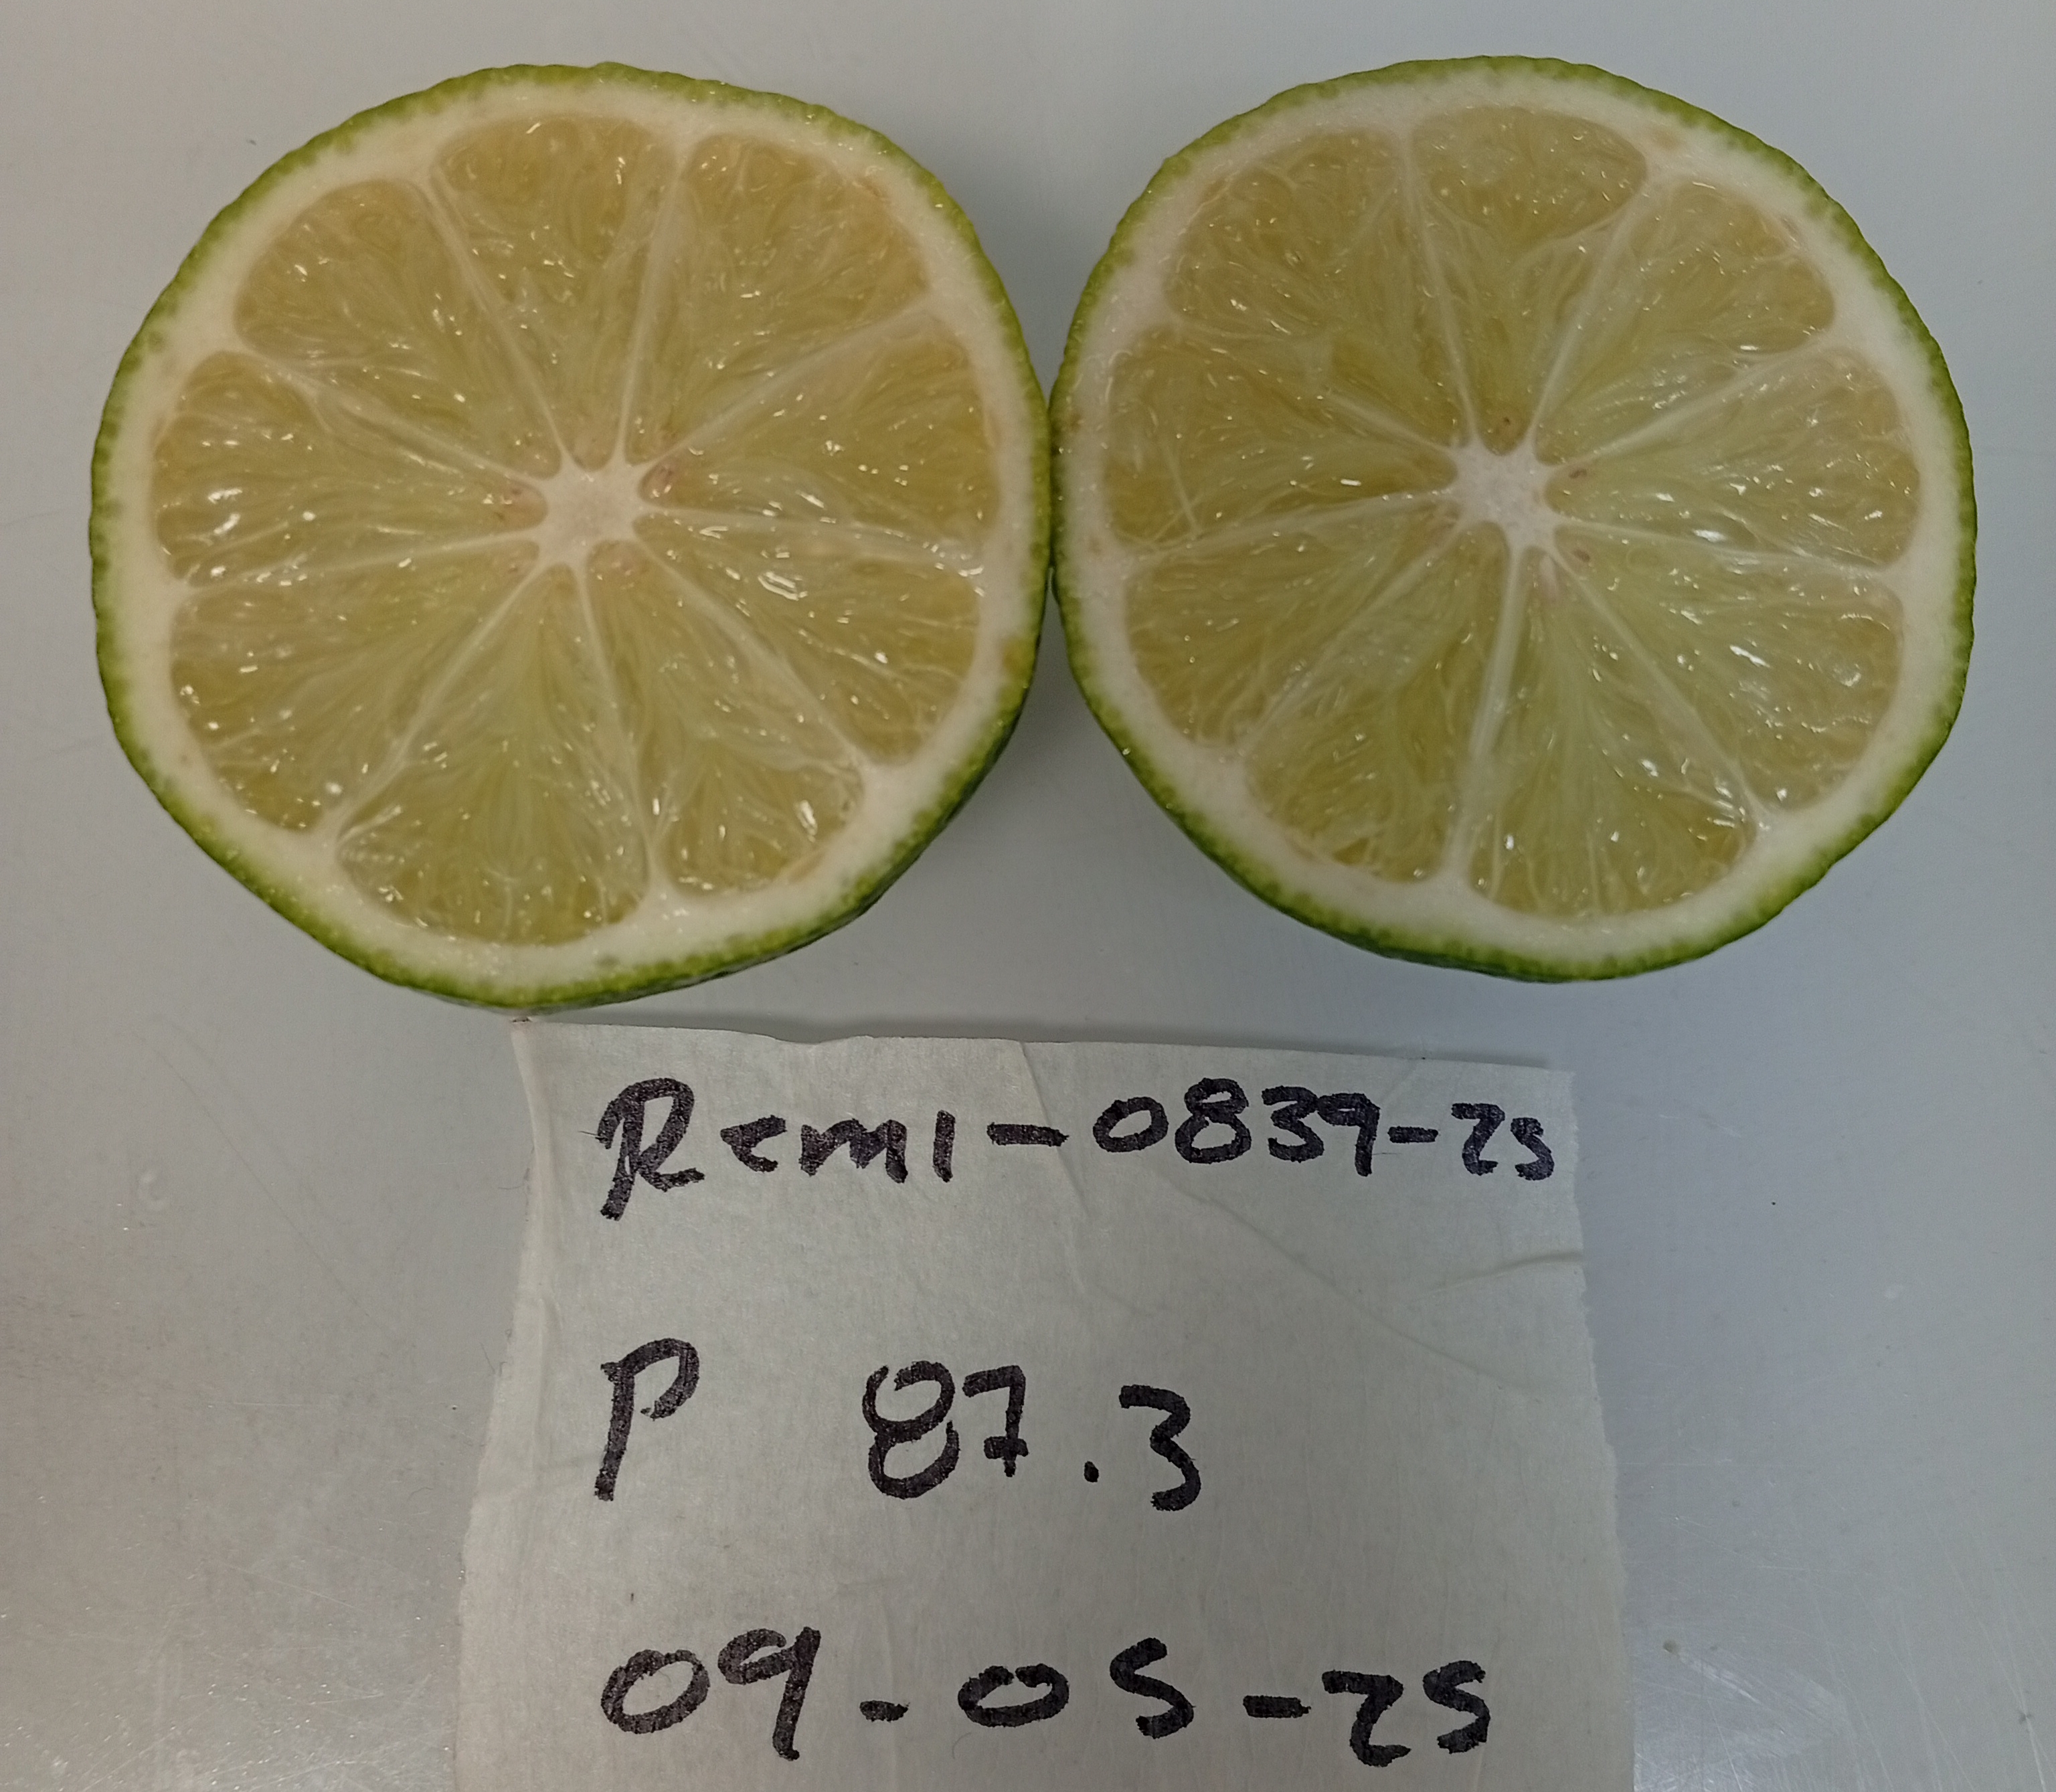 Remi-0839-25
P 87.3
09-05-25